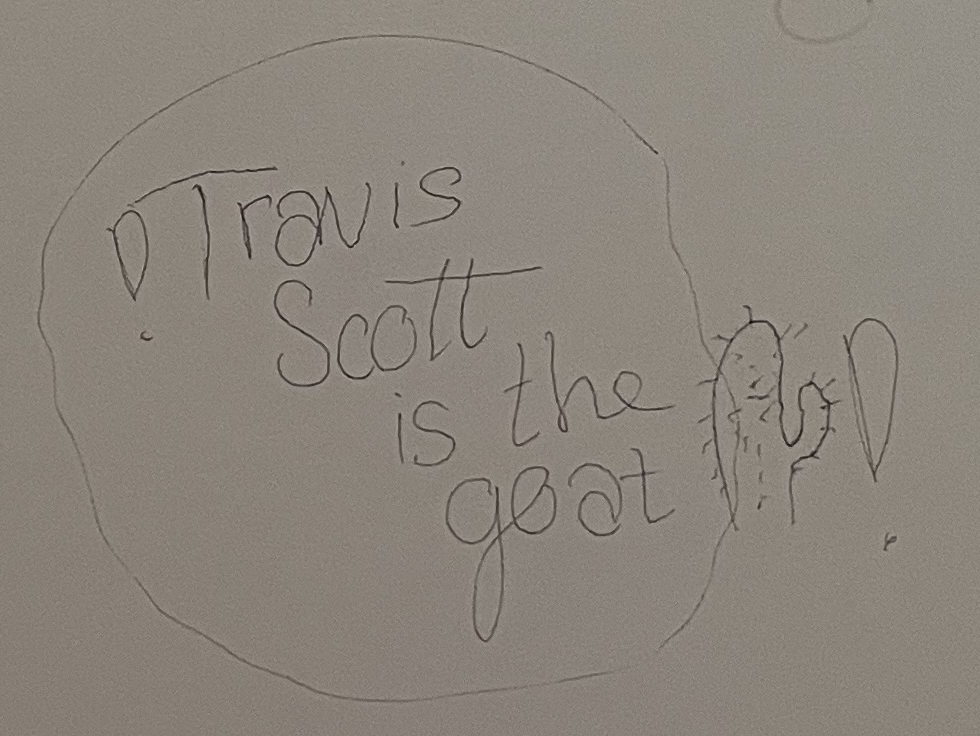 ! Travis
Scott
is the
goat !